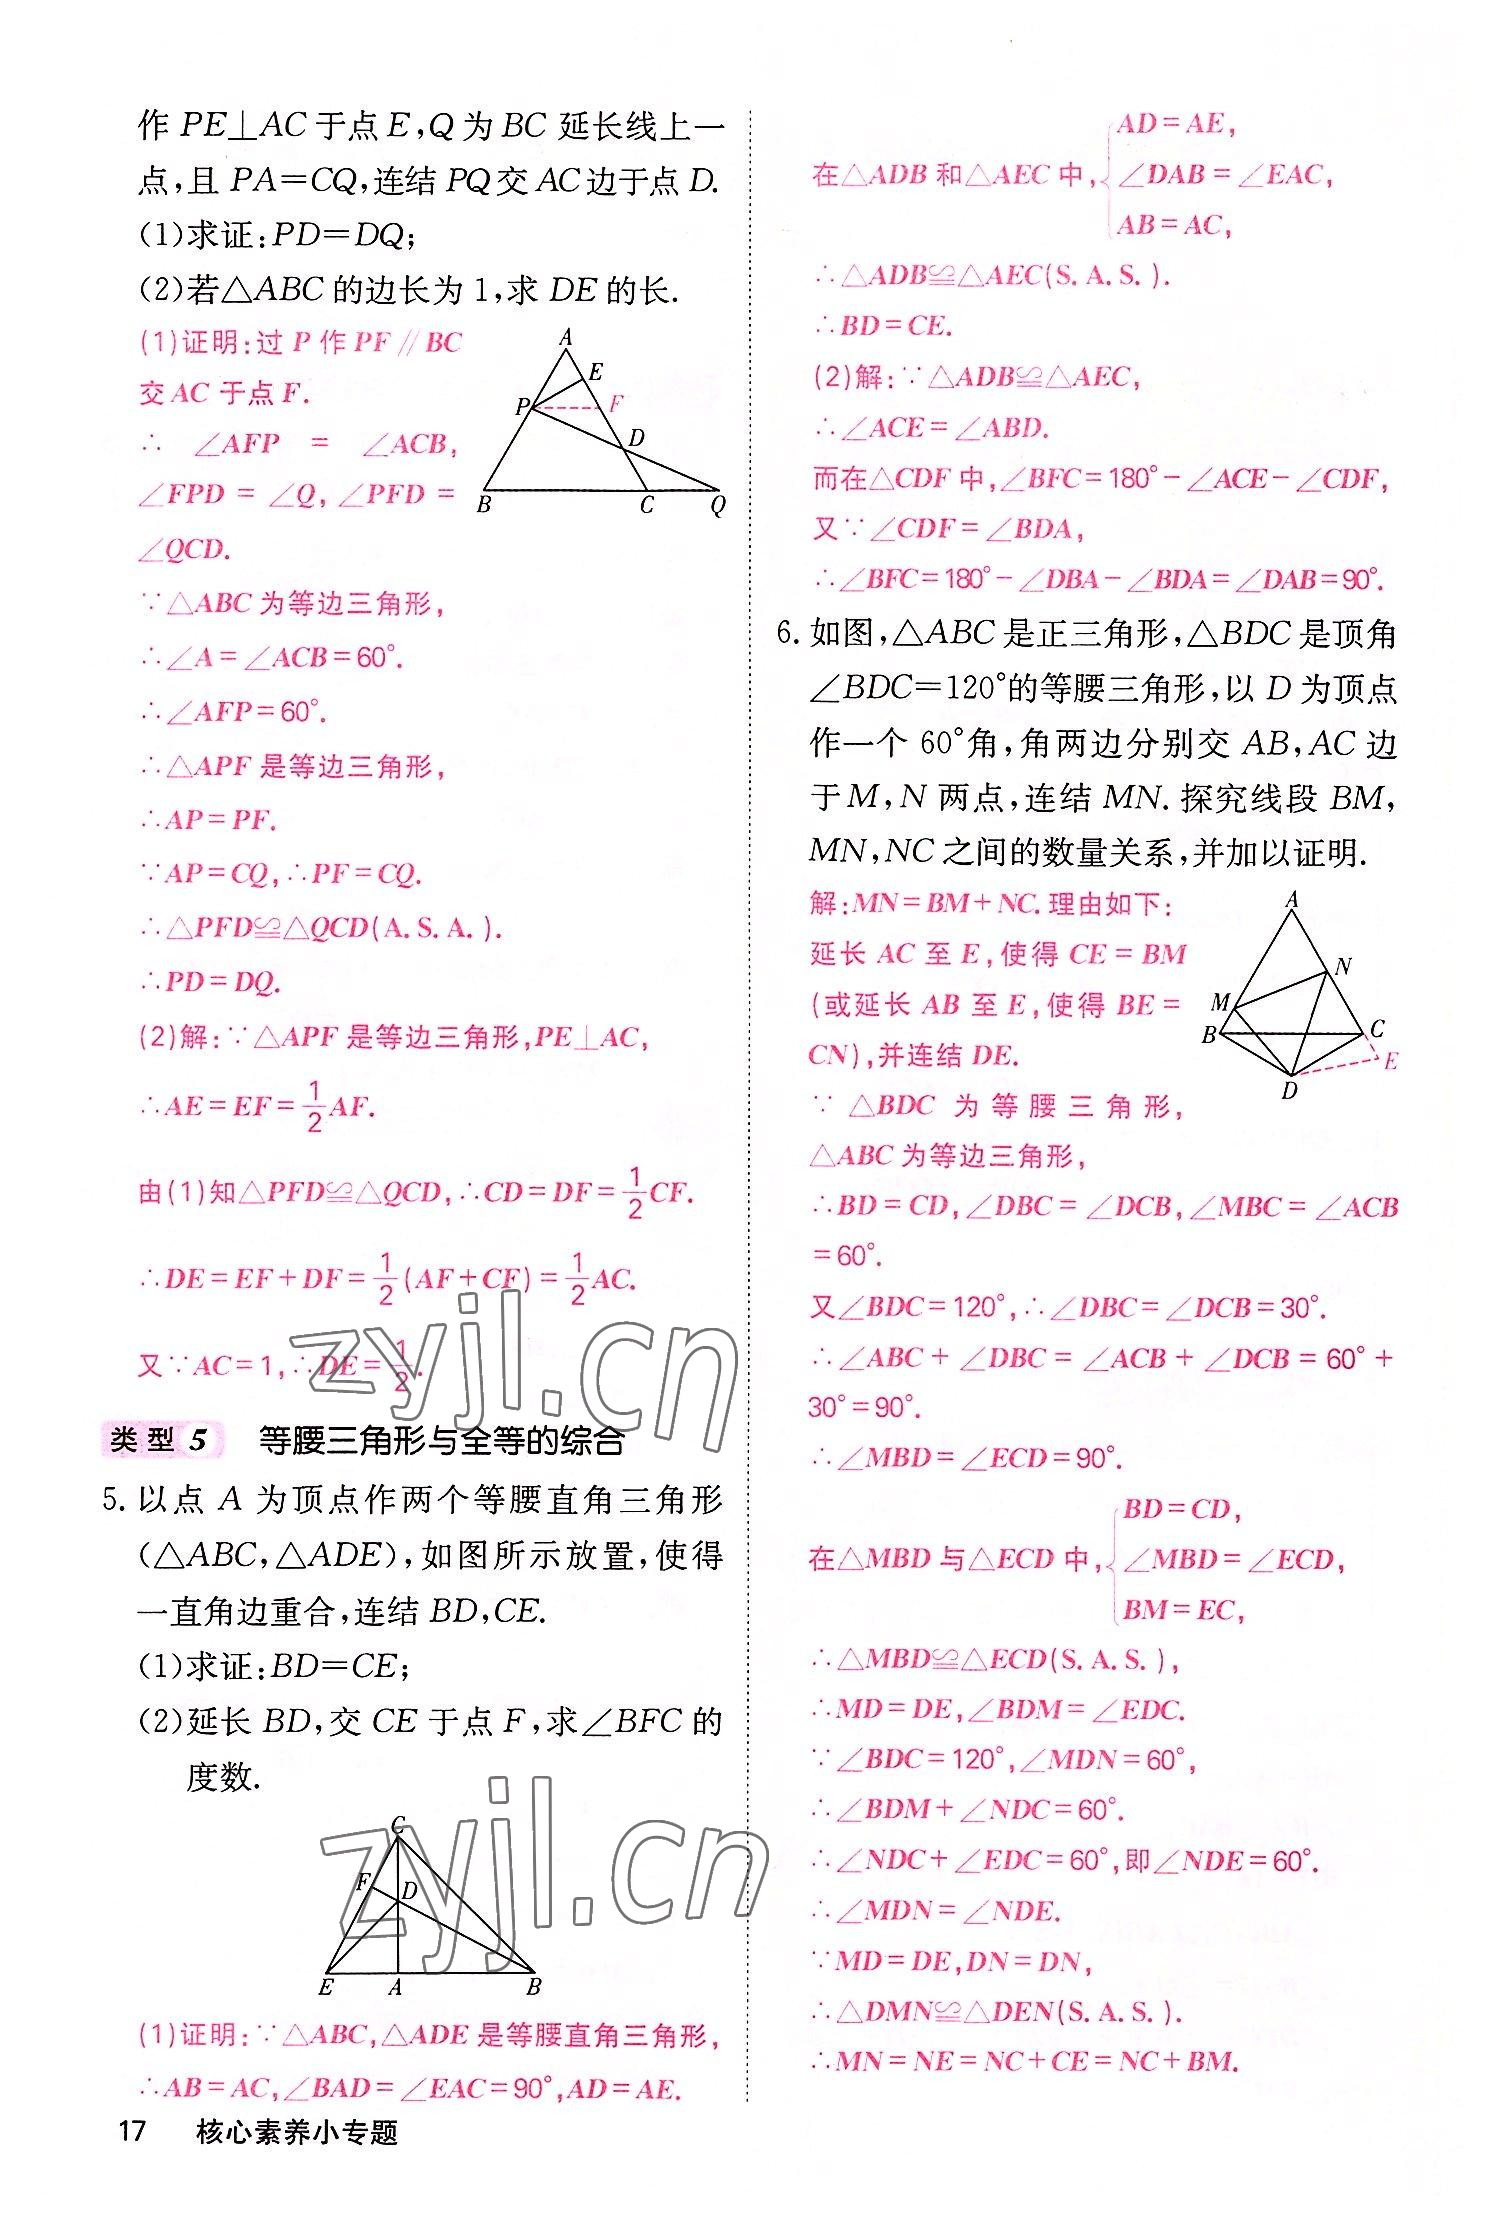 作 PE⊥AC 于点 E,Q 为 BC 延长线上一
点,且 PA=CQ,连结 PQ 交 AC 边于点 D.
(1)求证:PD=DQ;
(2)若△ABC 的边长为 1,求 DE 的长.
(1)证明:过 P 作 PF∥BC
交 AC 于点 F.
∴ ∠AFP = ∠ACB,
∠FPD = ∠Q,∠PFD =
∠QCD.
A
E
P
F
D
B
C
Q
∵△ABC 为等边三角形,
∴∠A=∠ACB=60°.
∴∠AFP=60°.
∴△APF 是等边三角形,
∴AP=PF.
∵AP=CQ,∴PF=CQ.
∴△PFD≌△QCD(A.S.A.).
∴PD=DQ.
(2)解:∵△APF 是等边三角形,PE⊥AC,
∴AE=EF=1/2AF.
由(1)知△PFD≌△QCD,∴CD=DF=1/2CF.
∴DE=EF+DF=1/2(AF+CF)=1/2AC.
又∵AC=1,∴DE=1/2.
类型 5 等腰三角形与全等的综合
5. 以点 A 为顶点作两个等腰直角三角形
(△ABC,△ADE),如图所示放置,使得
一直角边重合,连结 BD,CE.
(1)求证:BD=CE;
(2)延长 BD,交 CE 于点 F,求∠BFC 的
度数.
C
F
D
E
A
B
(1)证明:∵△ABC,△ADE 是等腰直角三角形,
∴AB=AC,∠BAD=∠EAC=90°,AD=AE.
17 核心素养小专题
AD=AE,
在△ADB 和△AEC 中,{∠DAB=∠EAC,
AB=AC,
∴△ADB≌△AEC(S.A.S.).
∴BD=CE.
(2)解:∵△ADB≌△AEC,
∴∠ACE=∠ABD.
而在△CDF 中,∠BFC=180°-∠ACE-∠CDF,
又∵∠CDF=∠BDA,
∴∠BFC=180°-∠DBA-∠BDA=∠DAB=90°.
6. 如图,△ABC 是正三角形,△BDC 是顶角
∠BDC=120°的等腰三角形,以 D 为顶点
作一个 60°角,角两边分别交 AB,AC 边
于 M,N 两点,连结 MN. 探究线段 BM,
MN,NC 之间的数量关系,并加以证明.
解:MN=BM+NC.理由如下:
延长 AC 至 E,使得 CE=BM
(或延长 AB 至 E,使得 BE=
CN),并连结 DE.
A
N
M
B
C
E
D
∵ △BDC 为等腰三角形,
△ABC 为等边三角形,
∴BD=CD,∠DBC=∠DCB,∠MBC=∠ACB
=60°.
又∠BDC=120°,∴∠DBC=∠DCB=30°.
∴∠ABC+∠DBC=∠ACB+∠DCB=60°+
30°=90°.
∴∠MBD=∠ECD=90°.
BD=CD,
在△MBD 与△ECD 中,{∠MBD=∠ECD,
BM=EC,
∴△MBD≌△ECD(S.A.S.),
∴MD=DE,∠BDM=∠EDC.
∵∠BDC=120°,∠MDN=60°,
∴∠BDM+∠NDC=60°.
∴∠NDC+∠EDC=60°,即∠NDE=60°.
∴∠MDN=∠NDE.
∵MD=DE,DN=DN,
∴△DMN≌△DEN(S.A.S.).
∴MN=NE=NC+CE=NC+BM.
zyjl.cn
zyjl.cn